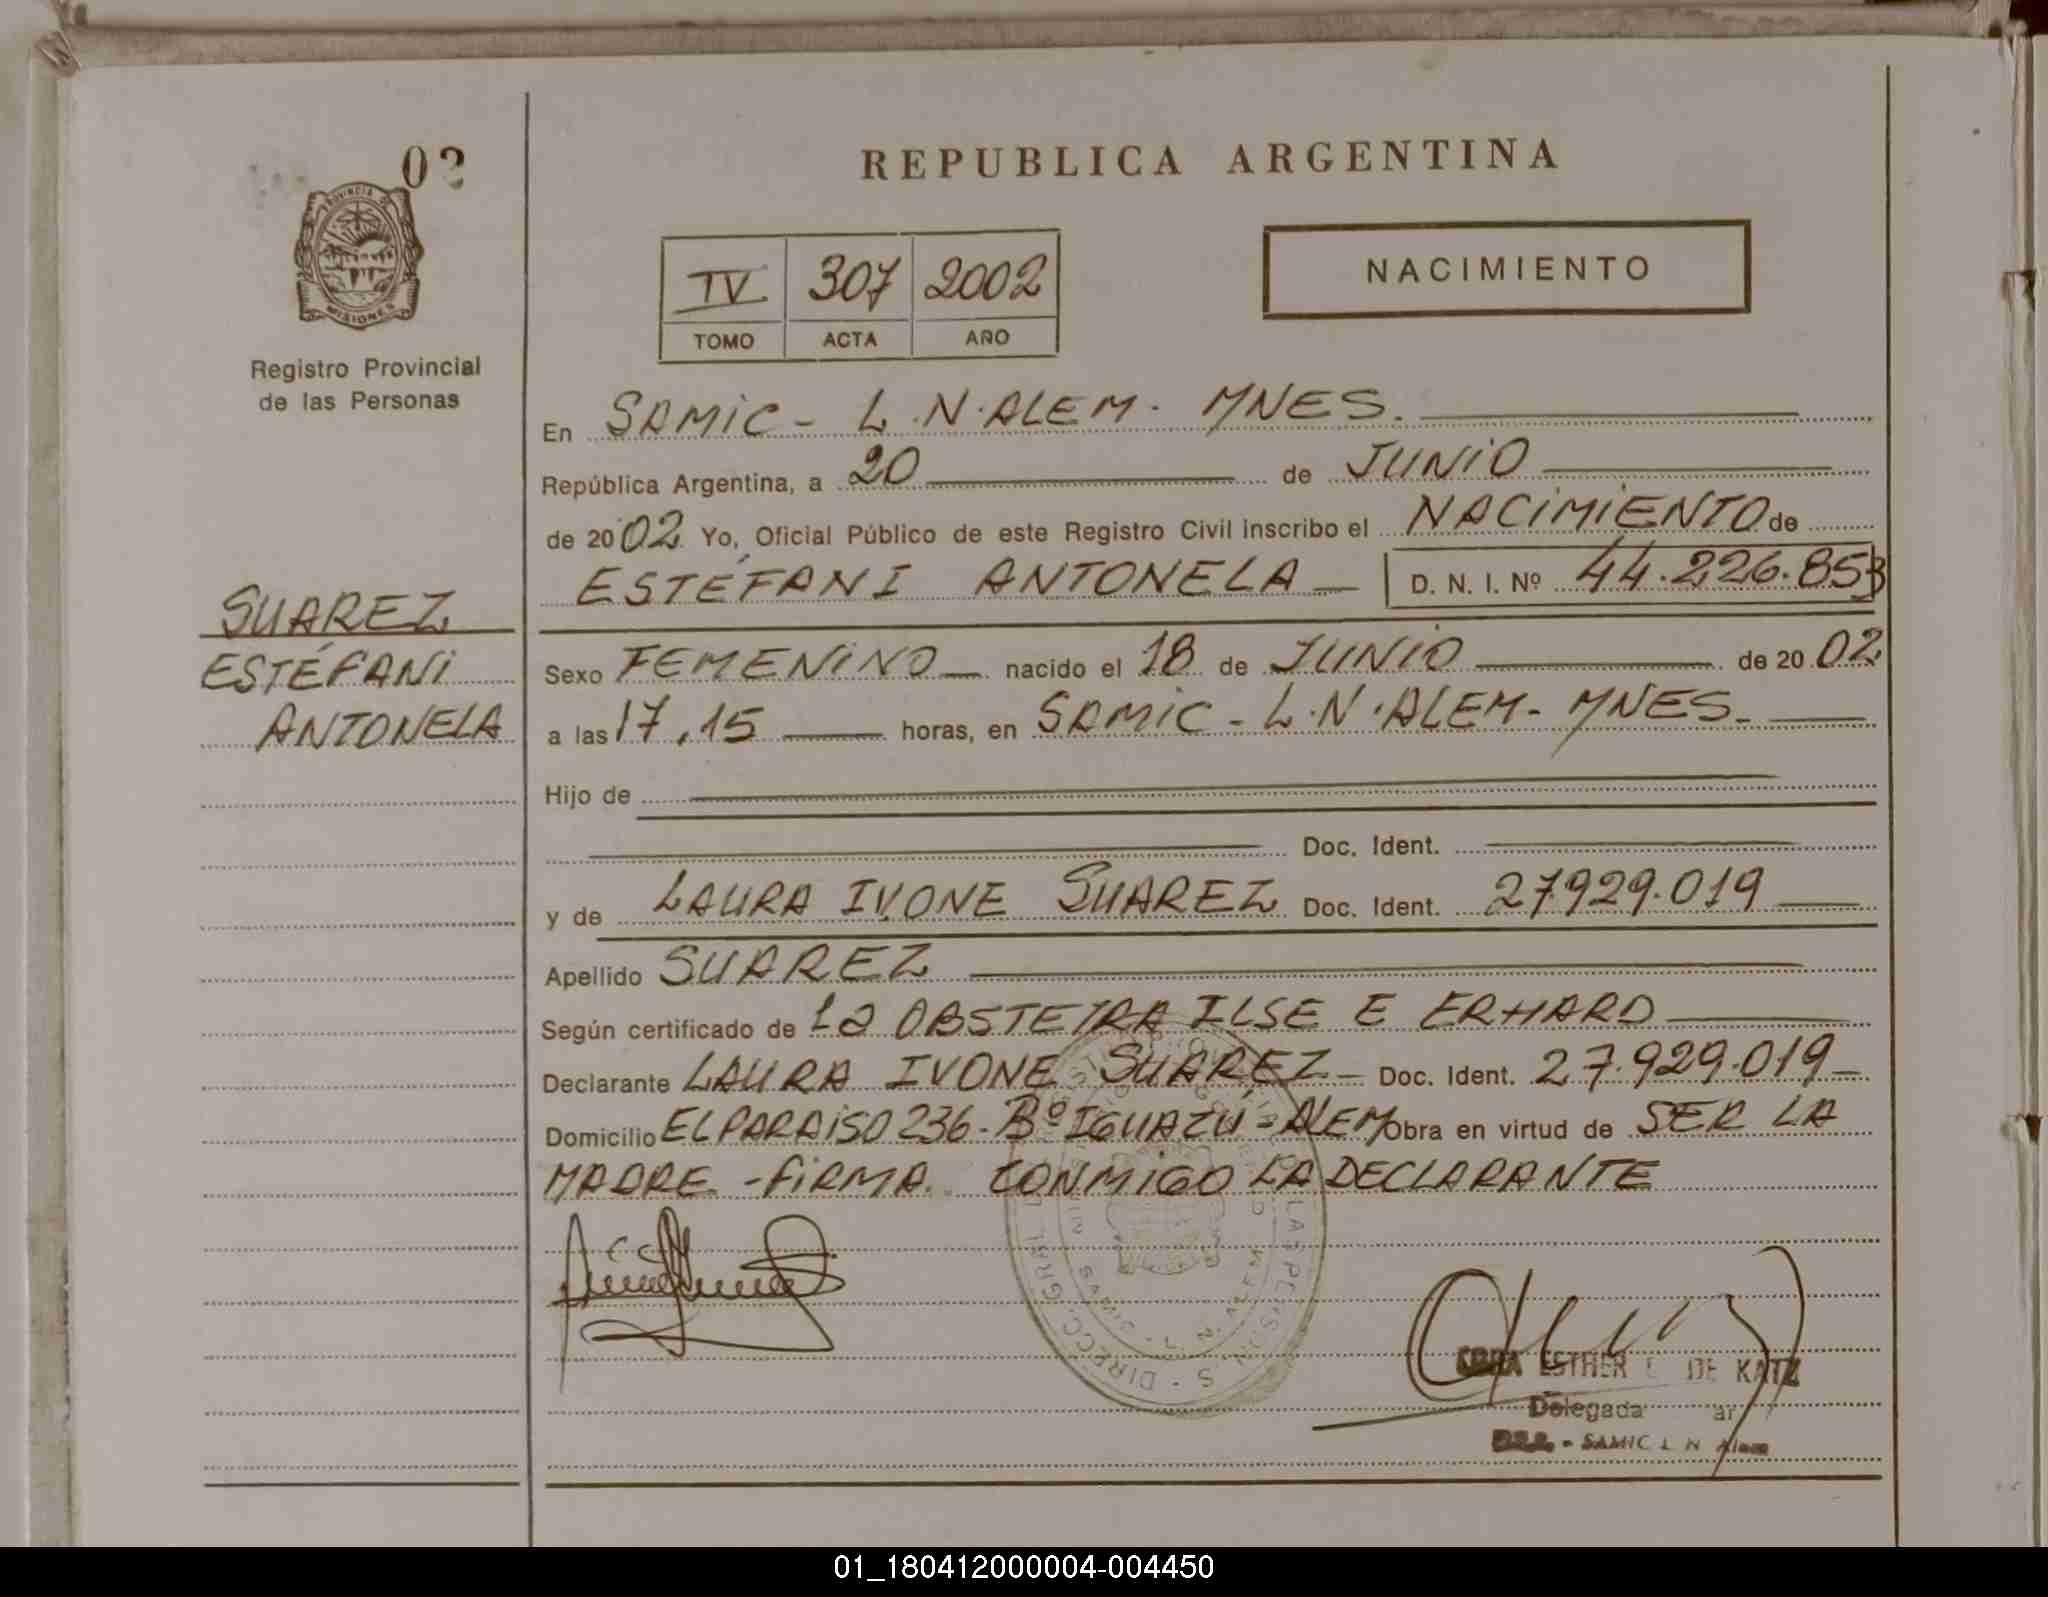 02
PROVINCIA DE
MISIONES
Registro Provincial
de las Personas
SUAREZ
ESTÉFANI
ANTONELA
REPUBLICA ARGENTINA
IV 307 2002
TOMO ACTA AÑO
NACIMIENTO
En SAMIC - L.N.ALEM. MNES.
República Argentina, a 20 de JUNIO
de 2002 Yo, Oficial Público de este Registro Civil inscribo el NACIMIENTO de
ESTÉFANI ANTONELA D. N. I. Nº 44.226.853
Sexo FEMENINO nacido el 18 de JUNIO de 2002
a las 17,15 horas, en SAMIC - L.N.ALEM - MNES.
Hijo de
Doc. Ident.
y de LAURA IVONE SUAREZ Doc. Ident. 27.929.019
Apellido SUAREZ
Según certificado de La OBSTETRA ILSE E ERHARD
Declarante LAURA IVONE SUAREZ - Doc. Ident. 27.929.019
Domicilio EL PARAISO 236 - Bº IGUAZÚ - ALEM Obra en virtud de SER LA
MADRE - FIRMA CONMIGO LA DECLARANTE
ESTHER DE KATZ
Delegada
SAMIC L N Alem
01_180412000004-004450